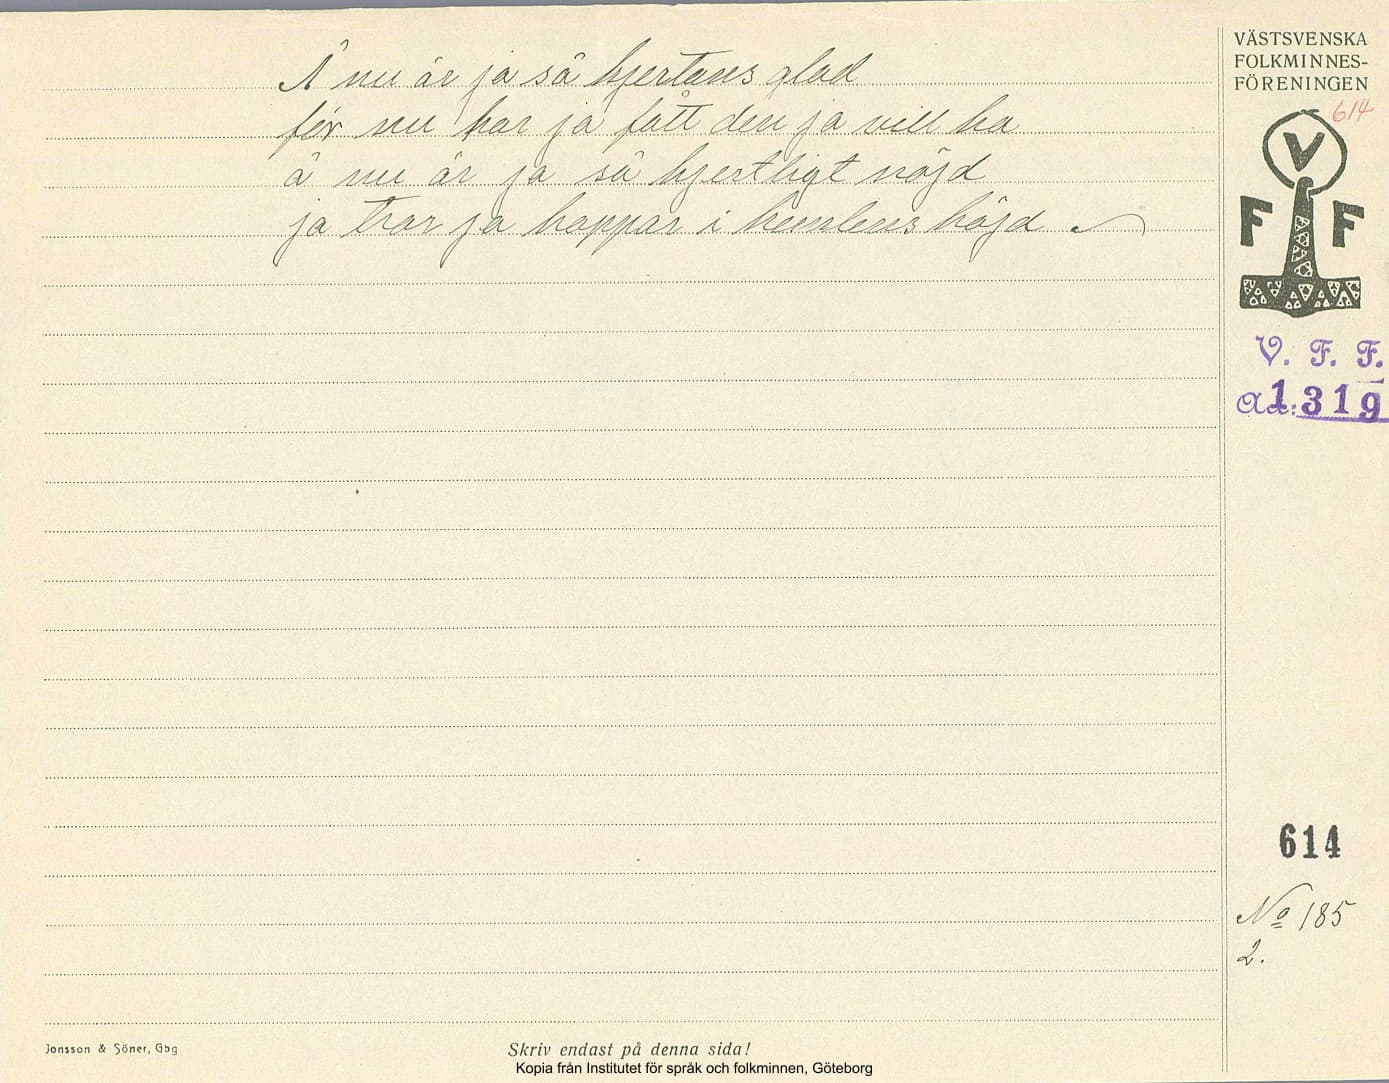 Å nu är ja så hjertans glad
för nu har ja fått den ja vill ha
å nu är ja så hjertligt nöjd
ja tror ja hoppar i himlens höjd
VÄSTSVENSKA
FOLKMINNES-
FÖRENINGEN
614
V
F F
V. F. F.
Acc: 1319
614
No 185
2.
Jonsson & Söner, Gbg
Skriv endast på denna sida!
Kopia från Institutet för språk och folkminnen, Göteborg